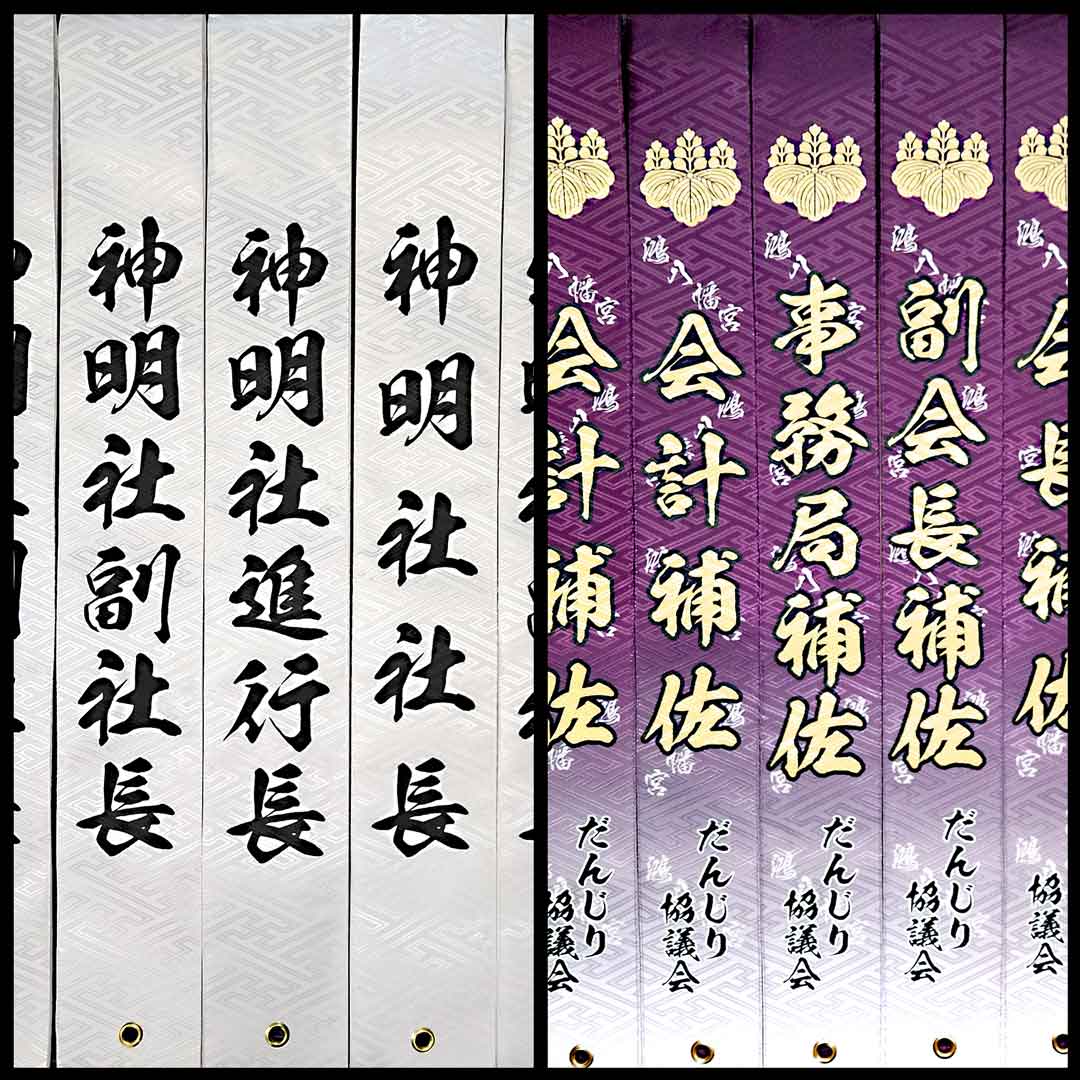 神明社副社長
神明社進行長
神明社社長
会計補佐
だんじり
協議会
鴻八幡宮
会計補佐
だんじり
協議会
鴻八幡宮
事務局補佐
だんじり
協議会
副会長補佐
だんじり
協議会
会長補佐
協議会